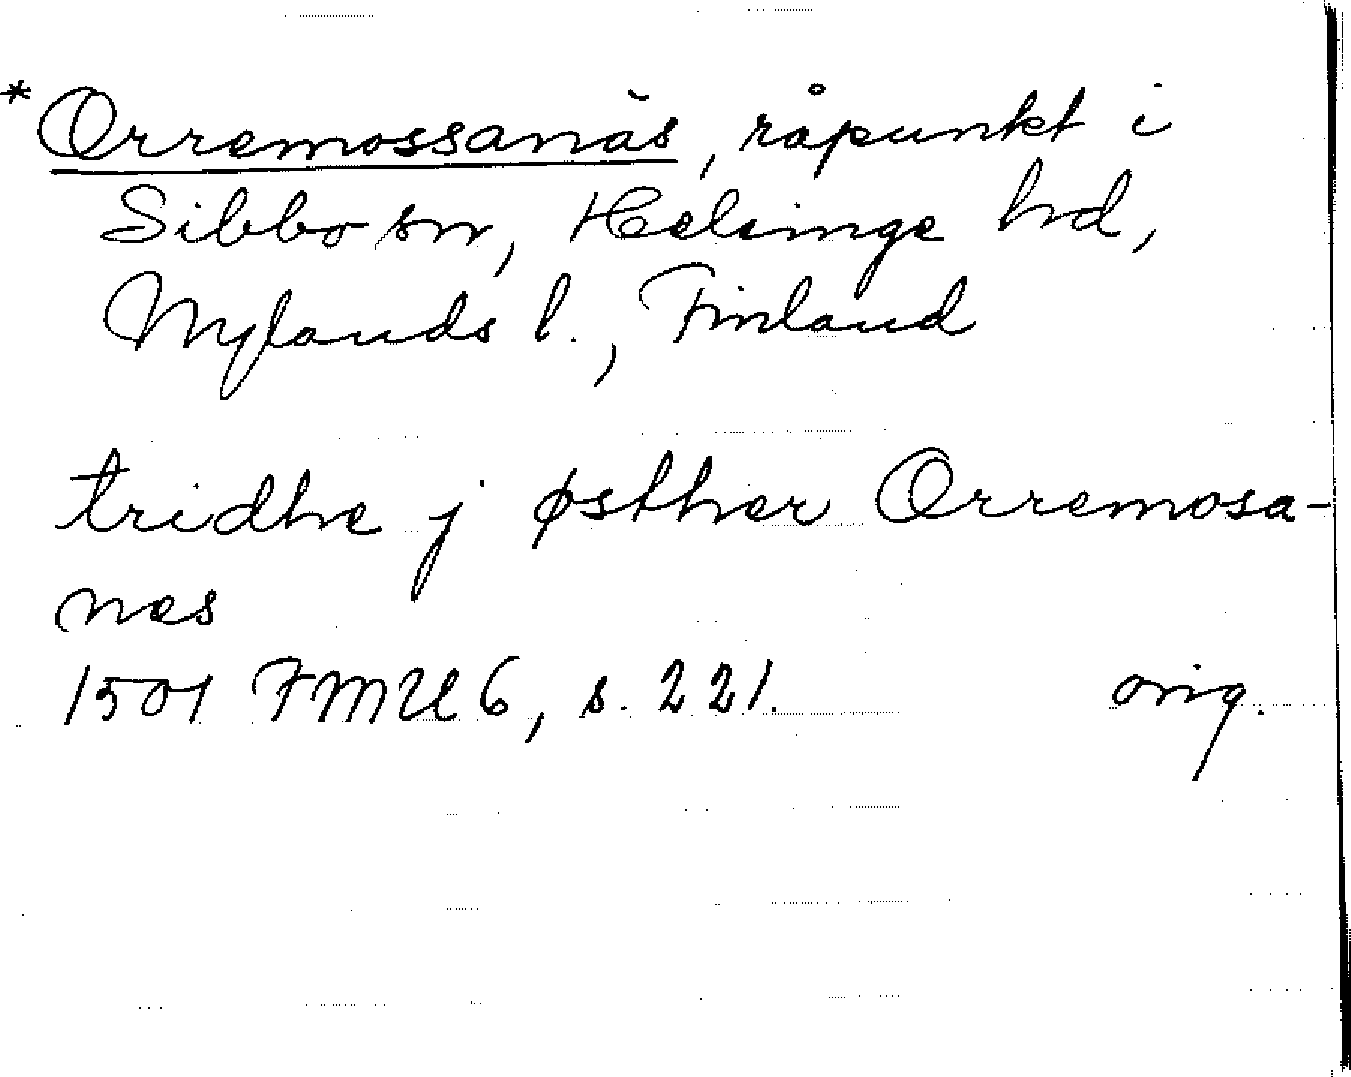 *Orremossanäs, råpunkt i
Sibbo sn, Helsinge hd,
Nylands l., Finland
tridhe j østher Orremosa-
nes
1501 FMU 6, s. 221.
orig.